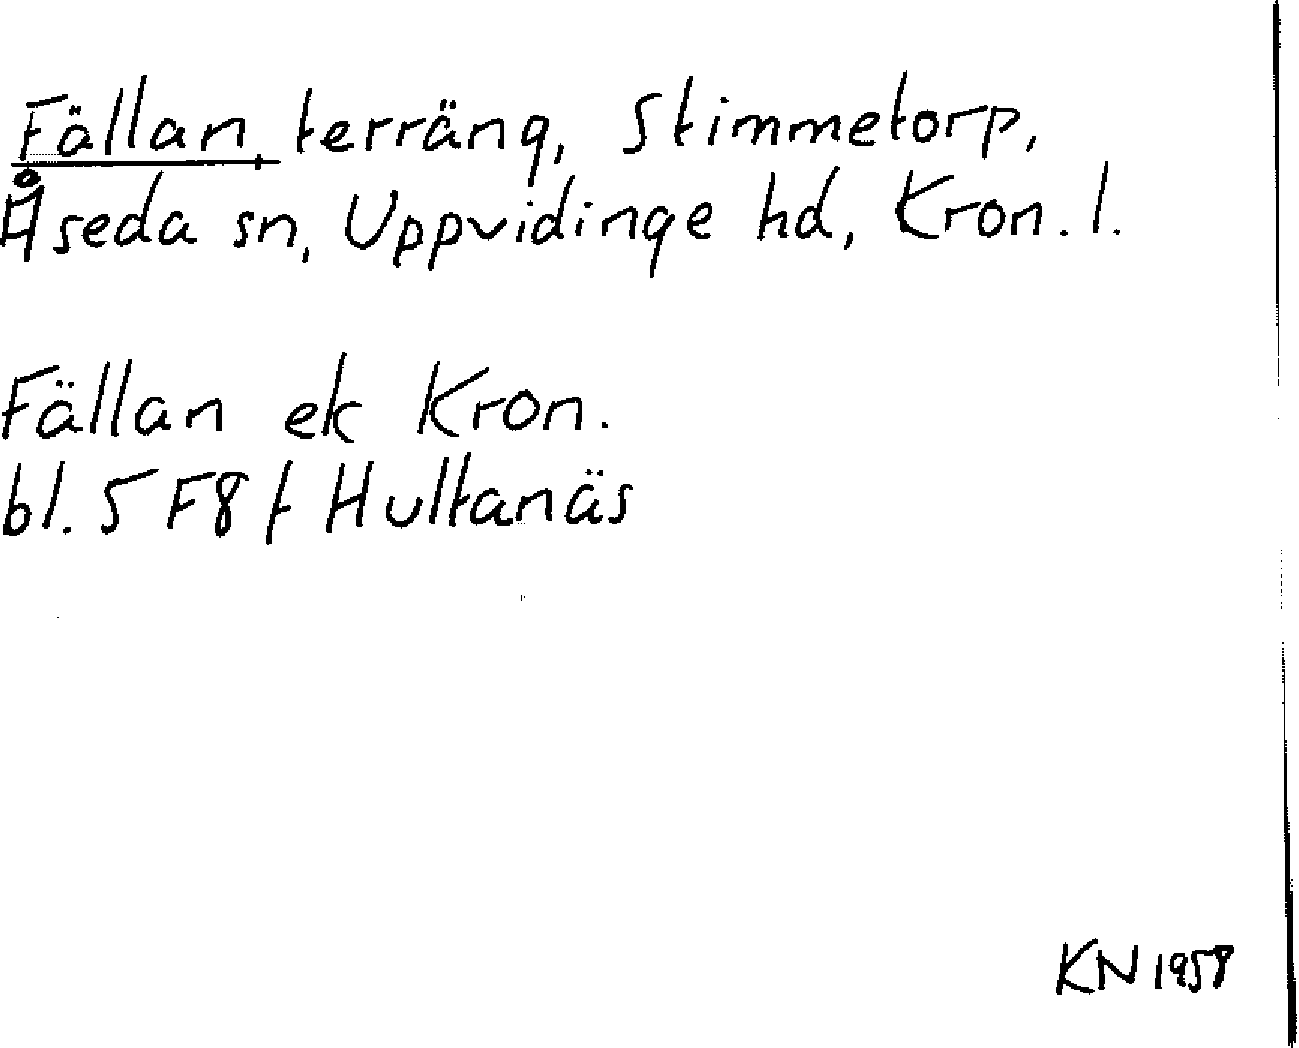 Fällan, terräng, Stimmetorp,
Åseda sn, Uppvidinge hd, Kron. l.
Fällan ek Kron.
bl. 5 F8f Hultanäs
KN 1958